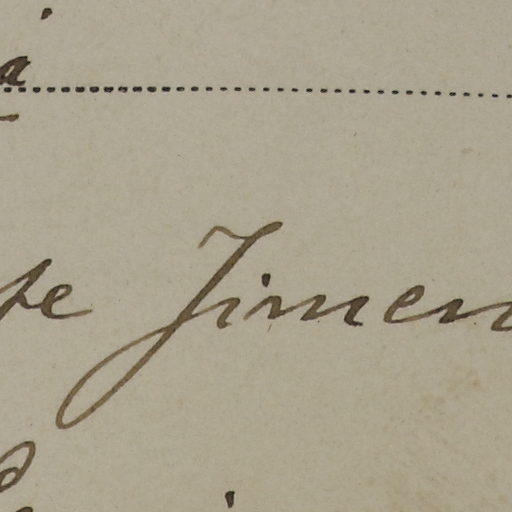 á
pe Jimen